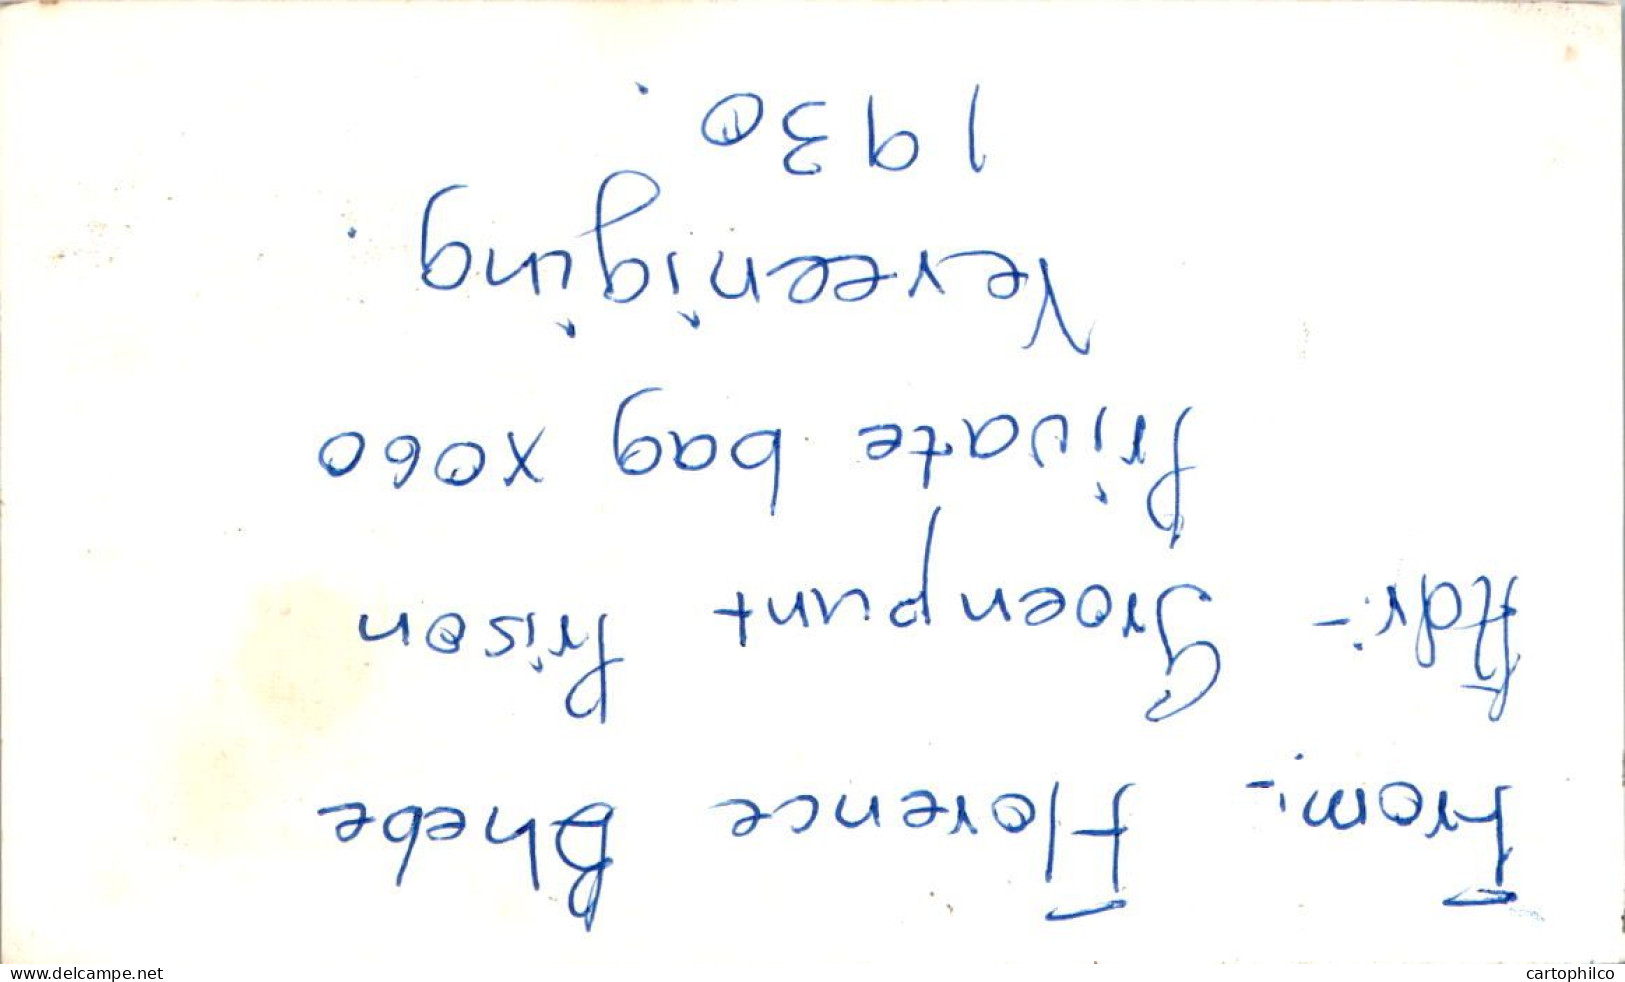 From:- Florence Bhebe
Adr:- Groenpunt Prison
Private bag X060
Vereeniging.
1930.
www.delcampe.net
cartophilco